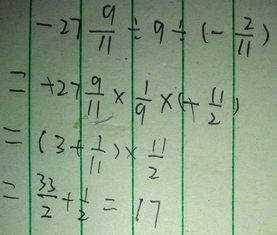 -27 9/11 ÷ 9 ÷ (- 2/11)
= +27 9/11 × 1/9 × (+ 11/2)
= (3 + 1/11) × 11/2
= 33/2 + 1/2 = 17